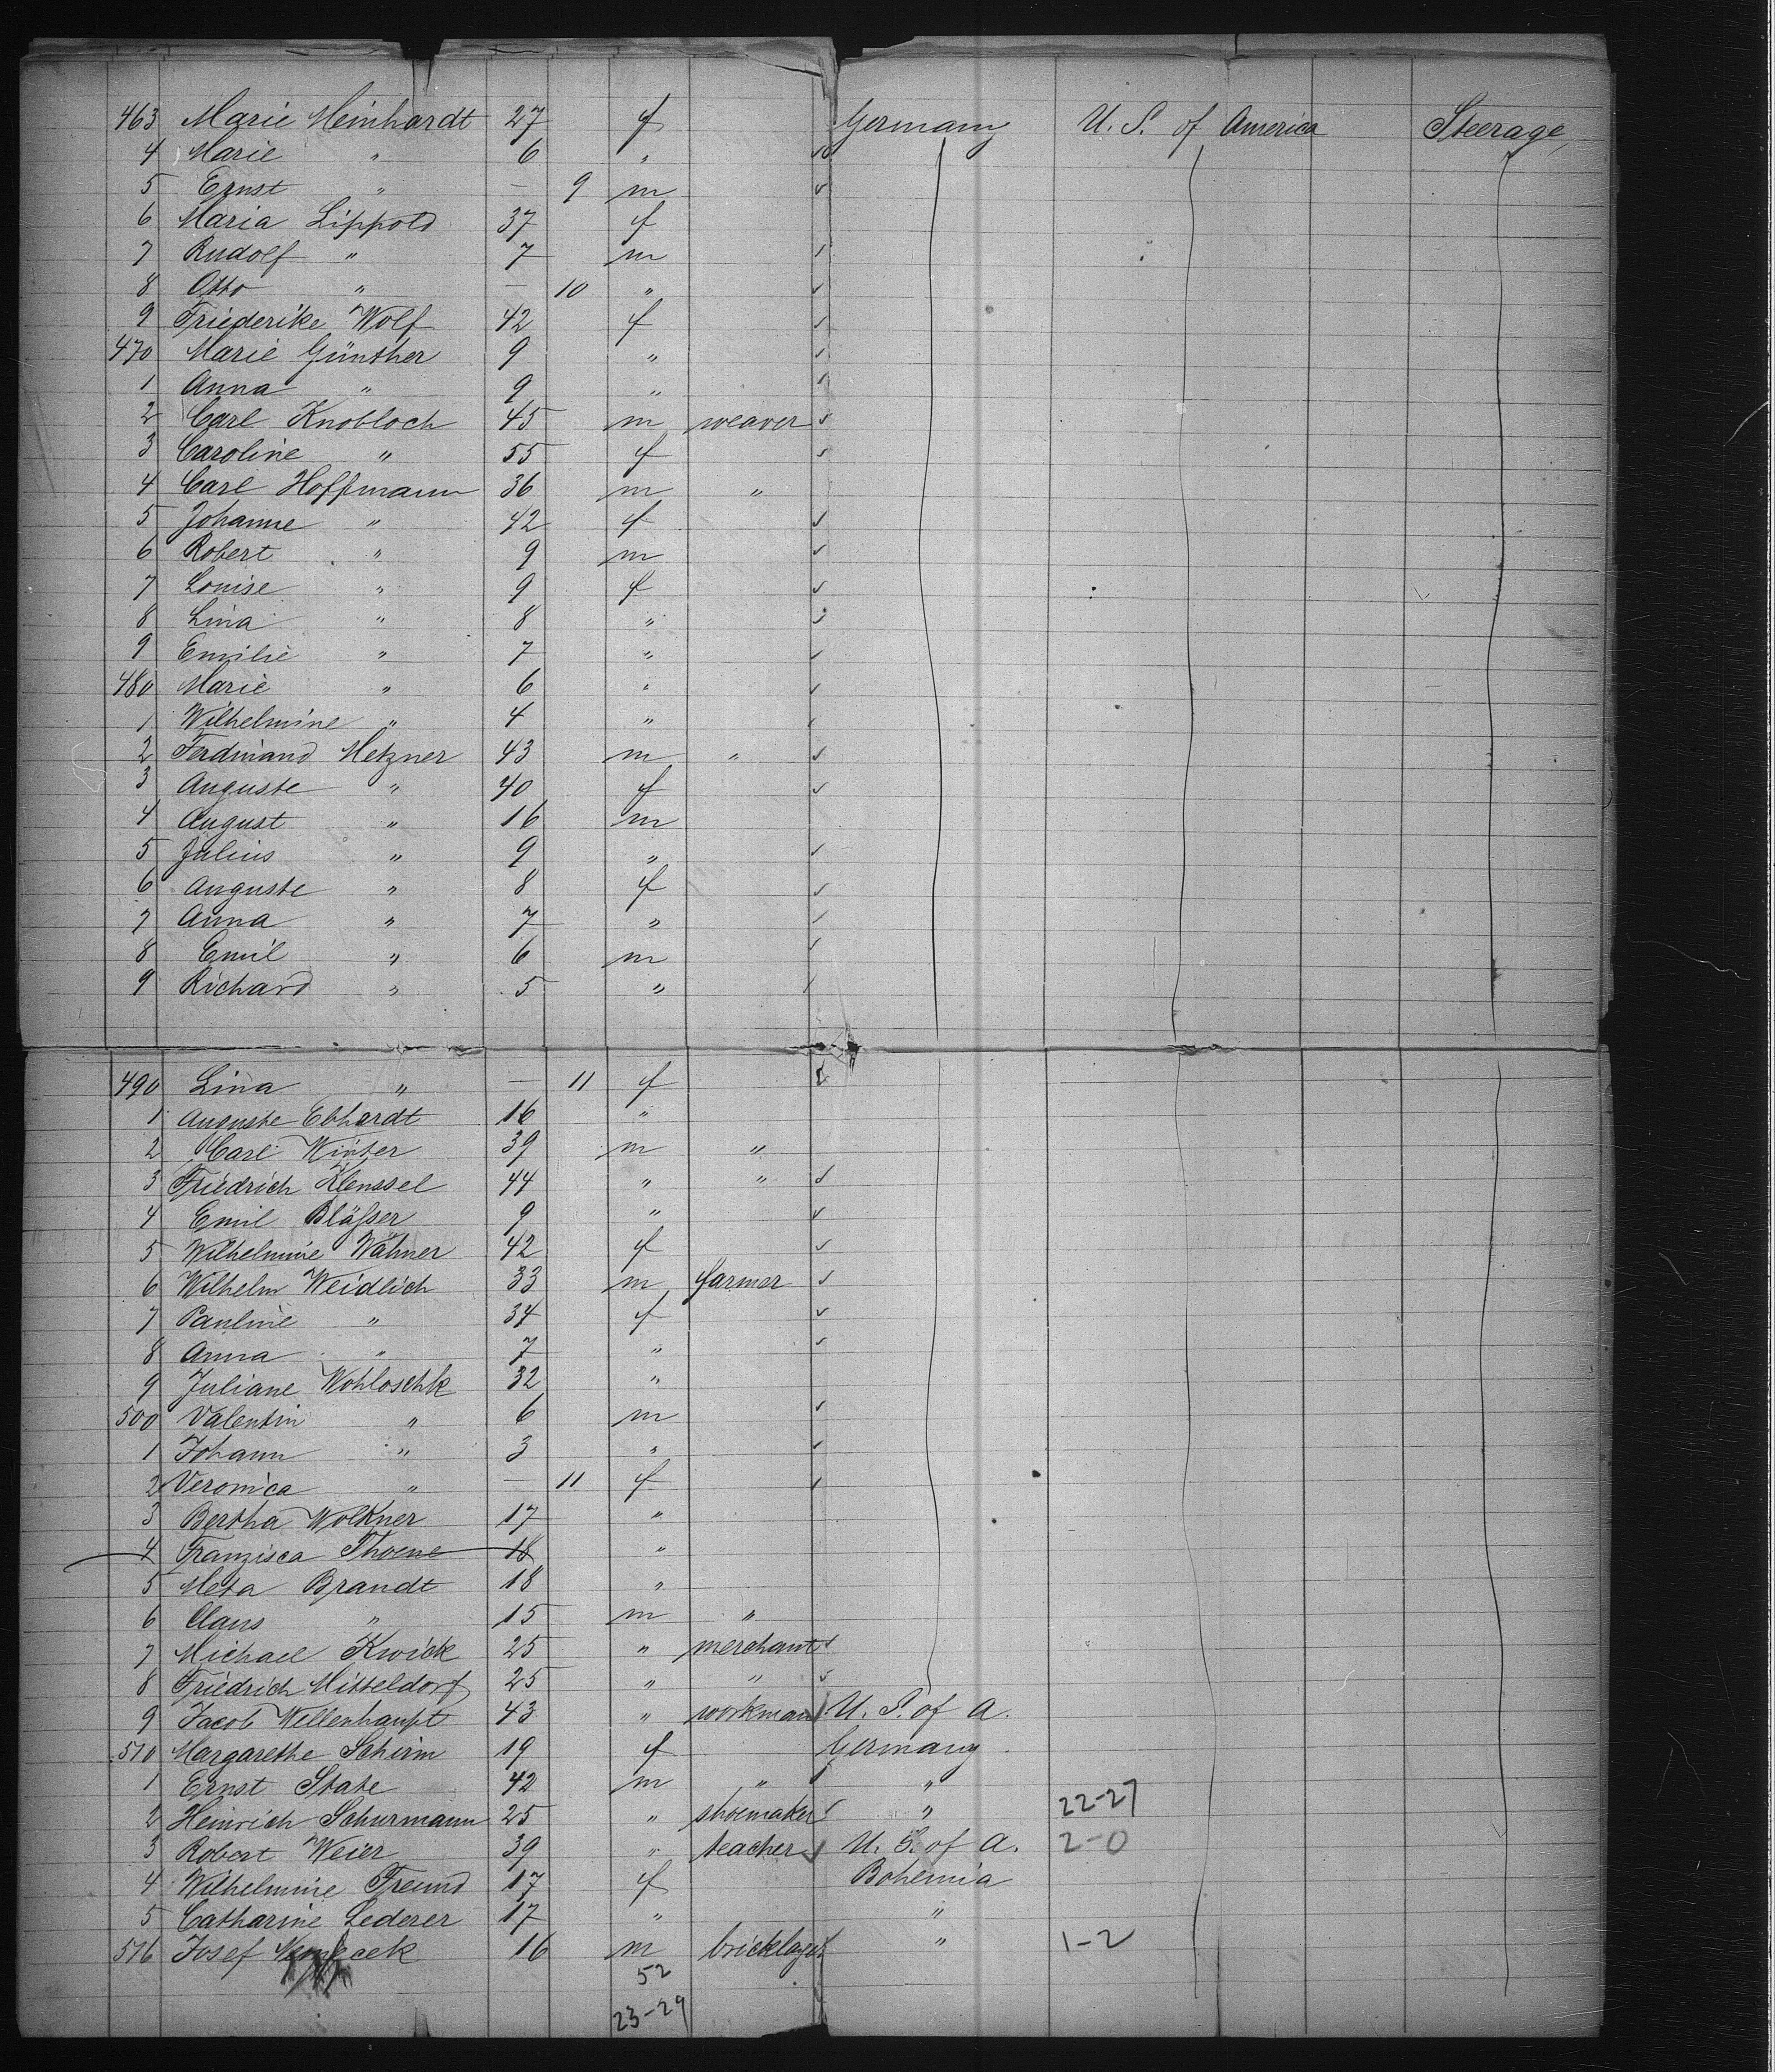 463 Marie Meinhardt 27 f Germany U. S. of America Steerage
4 Marie " 6 "
5 Ernst " — 9 m
6 Maria Lippold 37 f
7 Rudolf " 7 m
8 Otto " — 10 "
9 Friederike Wolf 42 f
470 Marie Günther 9 "
1 Anna " 9 "
2 Carl Knobloch 45 m weaver
3 Caroline " 55 f
4 Carl Hoffmann 36 m "
5 Johanne " 42 f
6 Robert " 9 m
7 Louise " 9 f
8 Lina " 8 "
9 Emilie " 7 "
480 Marie " 6 "
1 Wilhelmine " 4 "
2 Ferdinand Metzner 43 m "
3 Auguste " 40 f
4 August " 16 m
5 Julius " 9 "
6 Auguste " 8 f
7 Anna " 7 "
8 Emil " 6 m
9 Richard " 5 "
490 Lina " — 11 f
1 Auguste Ebhardt 16 "
2 Carl Winter 39 m "
3 Friedrich Klenssel 44 " "
4 Emil Bläßer 9 "
5 Wilhelmine Wähner 42 f
6 Wilhelm Weidlich 33 m farmer
7 Pauline " 34 f
8 Anna " 7 "
9 Juliane Wohloschk 32 "
500 Valentin " 6 m
1 Johann " 3 "
2 Veronica " — 11 f
3 Bertha Wolkner 17 "
4 Franzisca Thoene 18 "
5 Meta Brandt 18 "
6 Claus " 15 m "
7 Michael Kwick 25 " merchant
8 Friedrich Mitteldorf 25 " "
9 Jacob Wellenhaupt 43 " workman U. S. of A.
510 Margarethe Schirm 19 f Germany
1 Ernst State 42 m " "
2 Heinrich Schurmann 25 " shoemaker " 22-27
3 Robert Weier 39 " teacher U. S. of A. 2-0
4 Wilhelmine Freund 17 f Bohemia
5 Catharine Lederer 17 " "
516 Josef 16 m bricklayer " 1-2
52
23-29